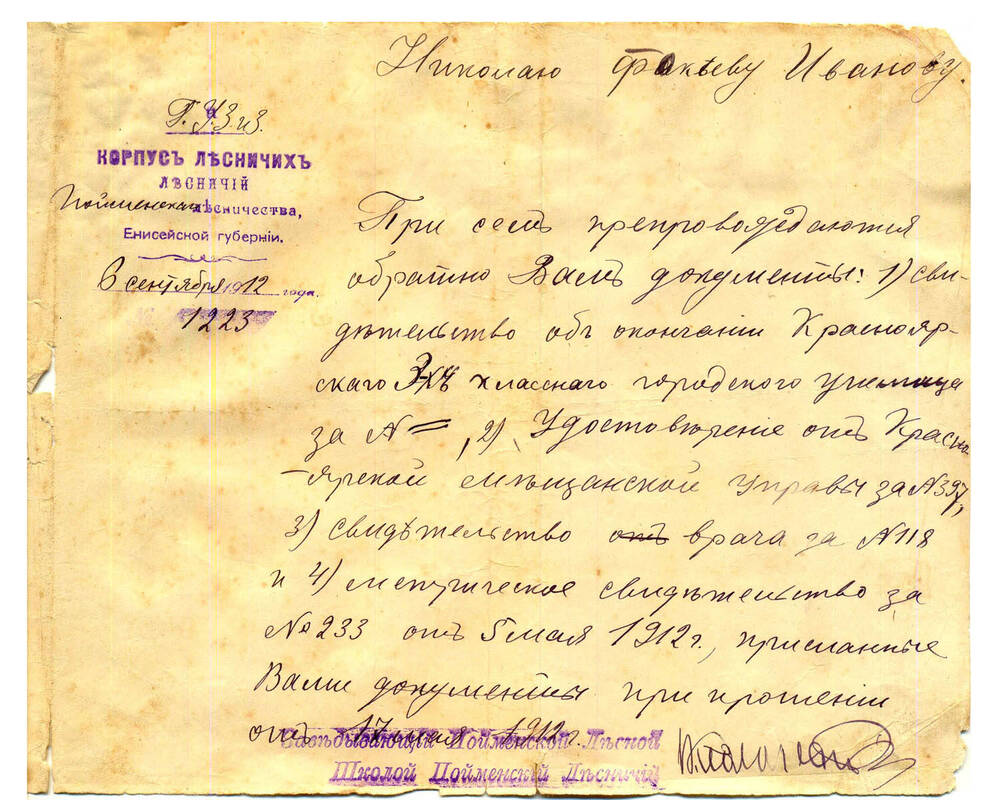 Николаю Фокѣеву Иванову.
Г. У. З. и З.
КОРПУСЪ ЛѢСНИЧИХЪ
ЛѢСНИЧІЙ
Пойменскаго лѣсничества,
Енисейской губерніи.
6 сентября 1912 года.
1223
При семъ препровождаются
обратно Вамъ документы: 1) сви-
дѣтельство объ окончаніи Краснояр-
скаго 3-хъ класснаго городского училища
за №= , 2) Удостовѣреніе отъ Красно-
-ярской мѣщанской Управы за №397,
3) свидѣтельство отъ врача за №118
и 4) метрическое свидѣтельство за
№ 233 отъ 5 мая 1912 г., присланные
Вами документы при прошеніи
отъ 17 1912 г.
Завѣдывающій Пойменской Лѣсной
Школой Пойменскій Лѣсничій